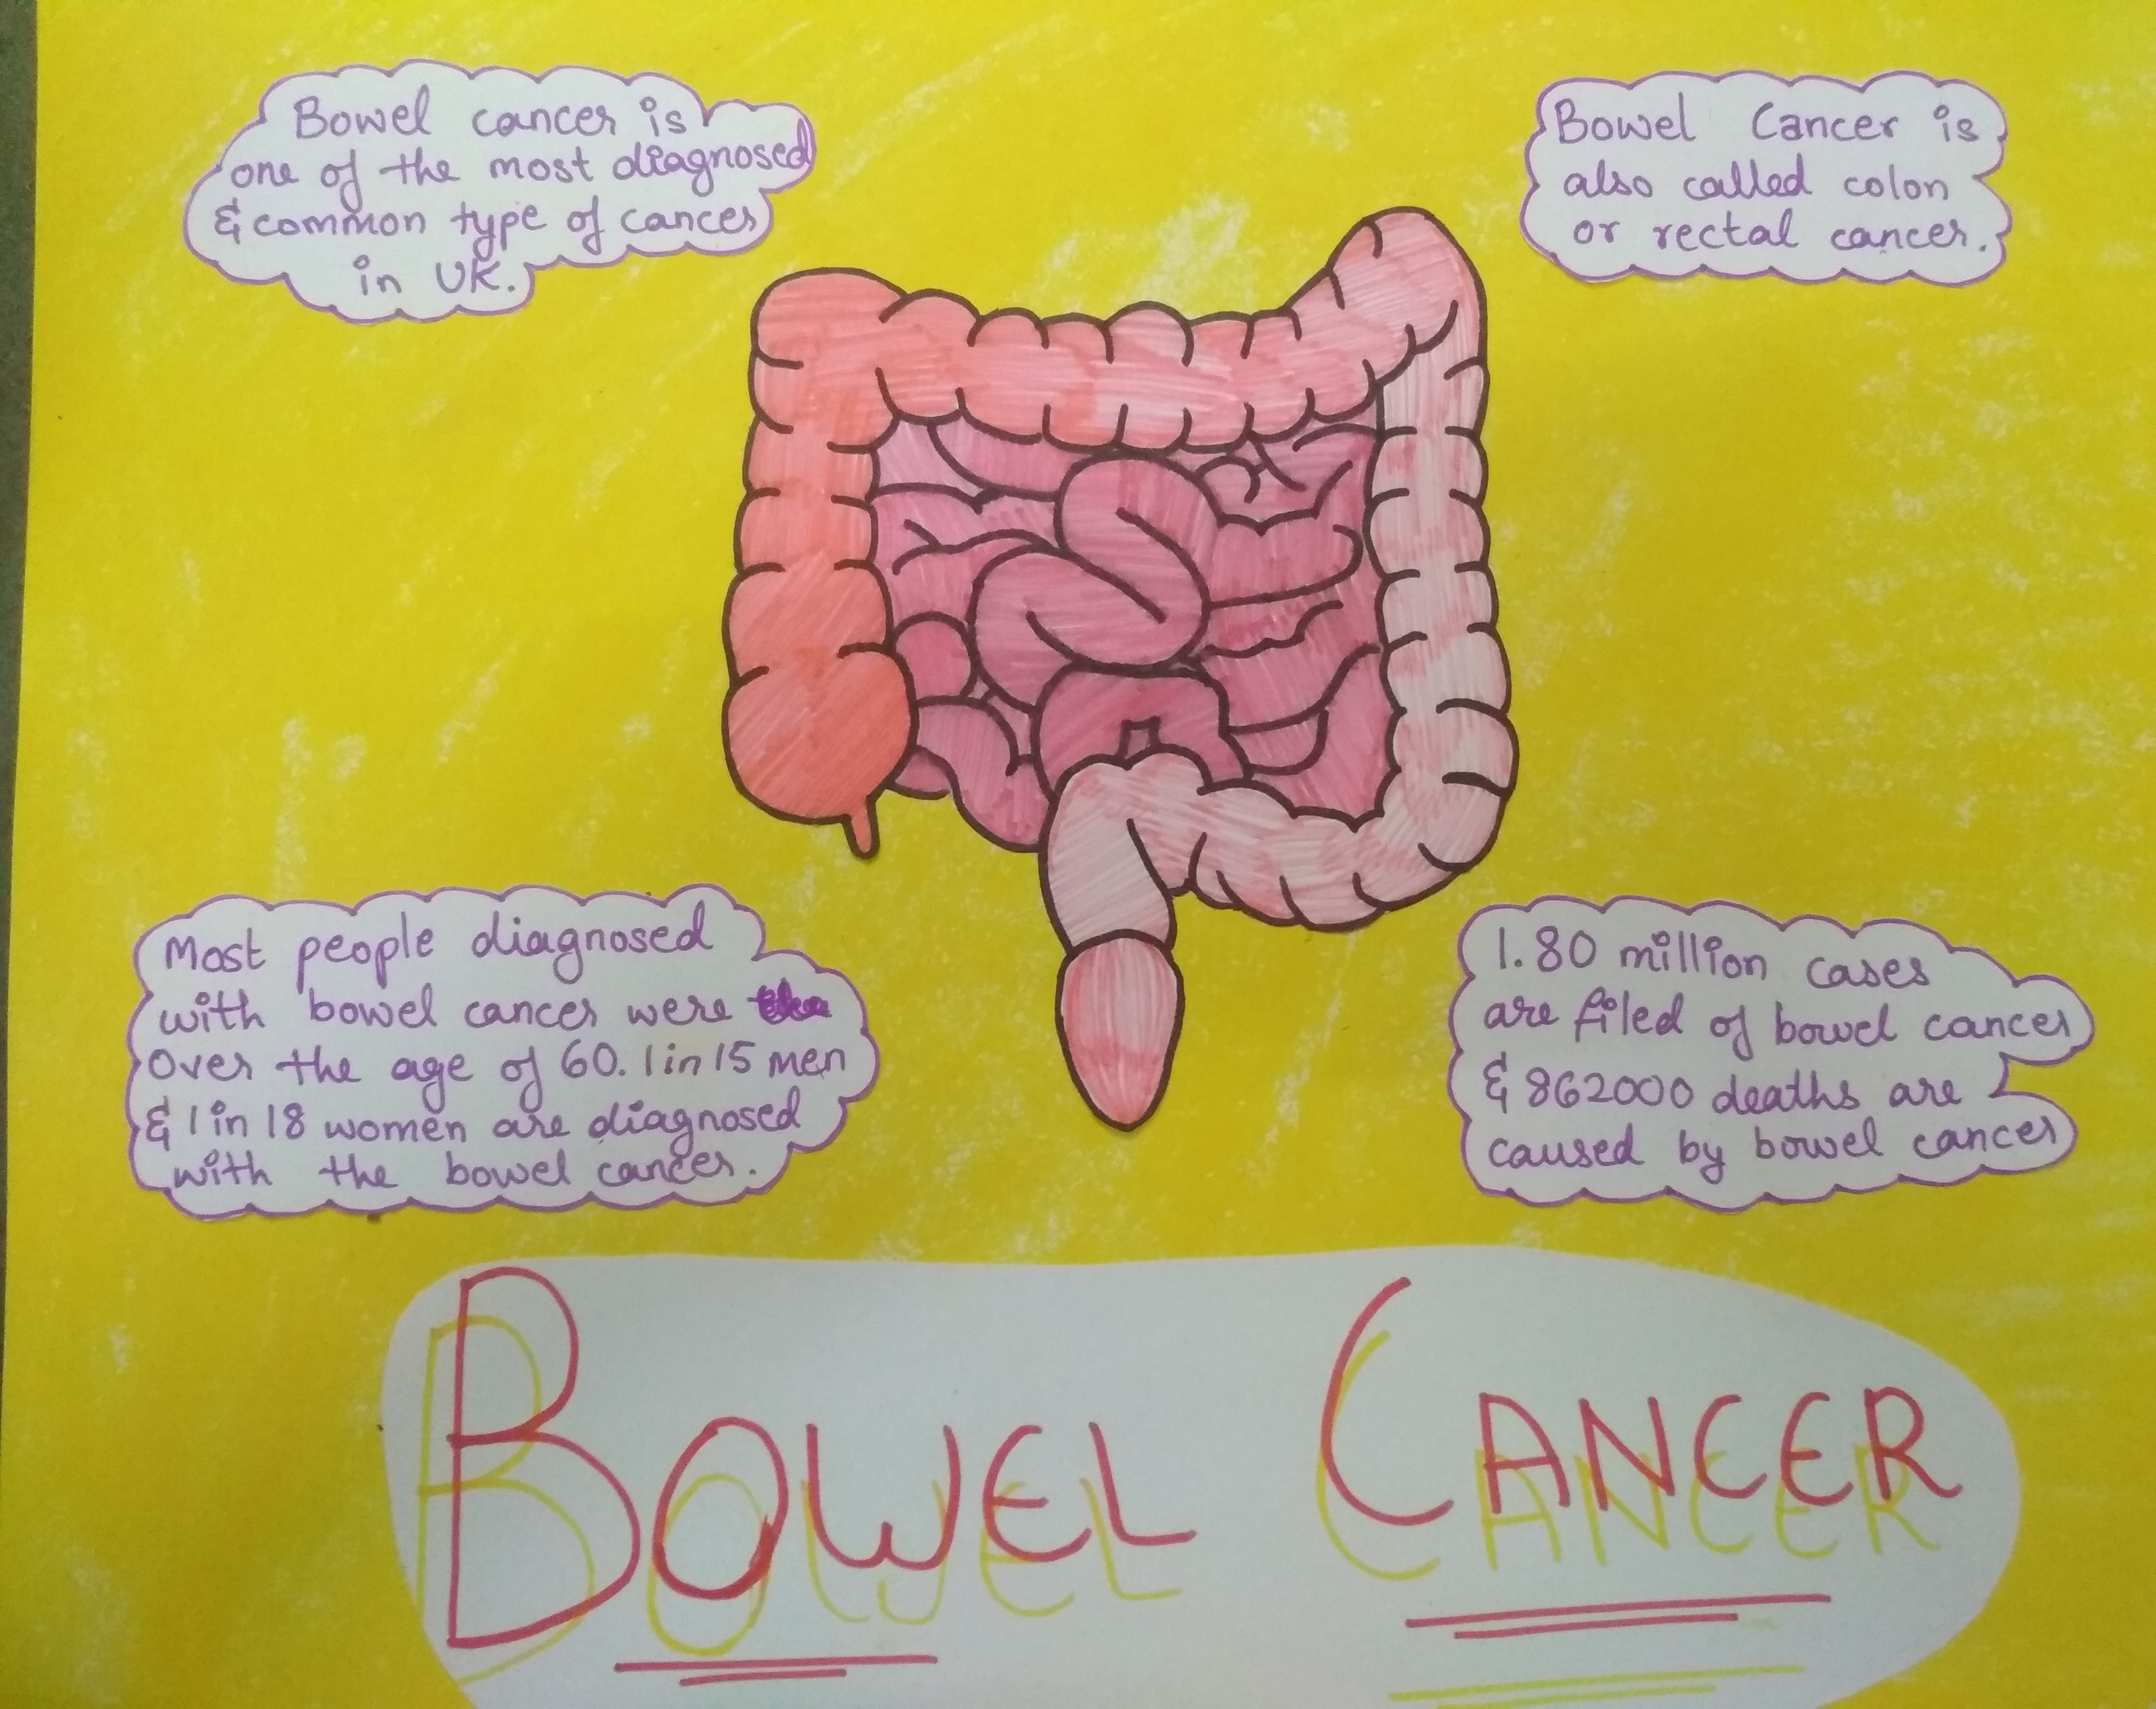 Bowel cancer is
one of the most diagnosed
& common type of cancer
in UK.
Bowel Cancer is
also called colon
or rectal cancer.
Most people diagnosed
with bowel cancer were
Over the age of 60. 1 in 15 men
& 1 in 18 women are diagnosed
with the bowel cancer.
1.80 million cases
are filed of bowel cancer
& 862000 deaths are
caused by bowel cancer
BOWEL CANCER